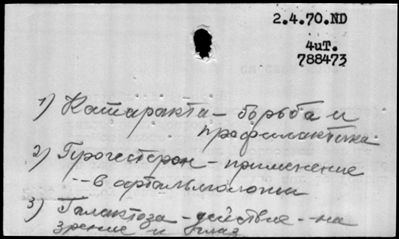 2.4.70.ND
4иТ.
788473
1) Катаракта – борьба и
профилактика.
2) Прогестерон – применение
-- в офтальмологии
3) Галактоза – действие -- на
зрение и глаз